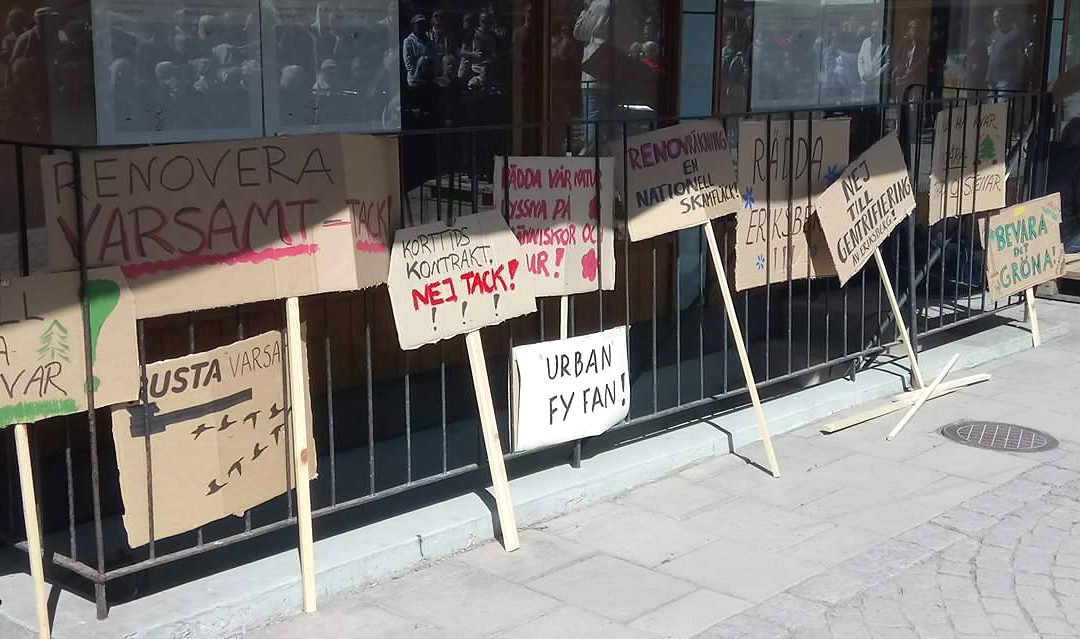 RENOVERA
VARSAMT - TACK!
VAR
RUSTA "VARSA
KORTTIDS
KONTRAKT,
NEJ TACK!
!!!
RÄDDA VÅR NATUR
LYSSNA PÅ
MÄNNISKOR OCH
"URBAN"
FY FAN!
RENOVRÄKNING
EN
NATIONELL
SKAMFLÄCK!
RÄDDA
ERIKSBE
!!!
NEJ
TILL
GENTRIFIERING
AV ERIKSBERG!
VAR
BEVARA
DET
GRÖNA!